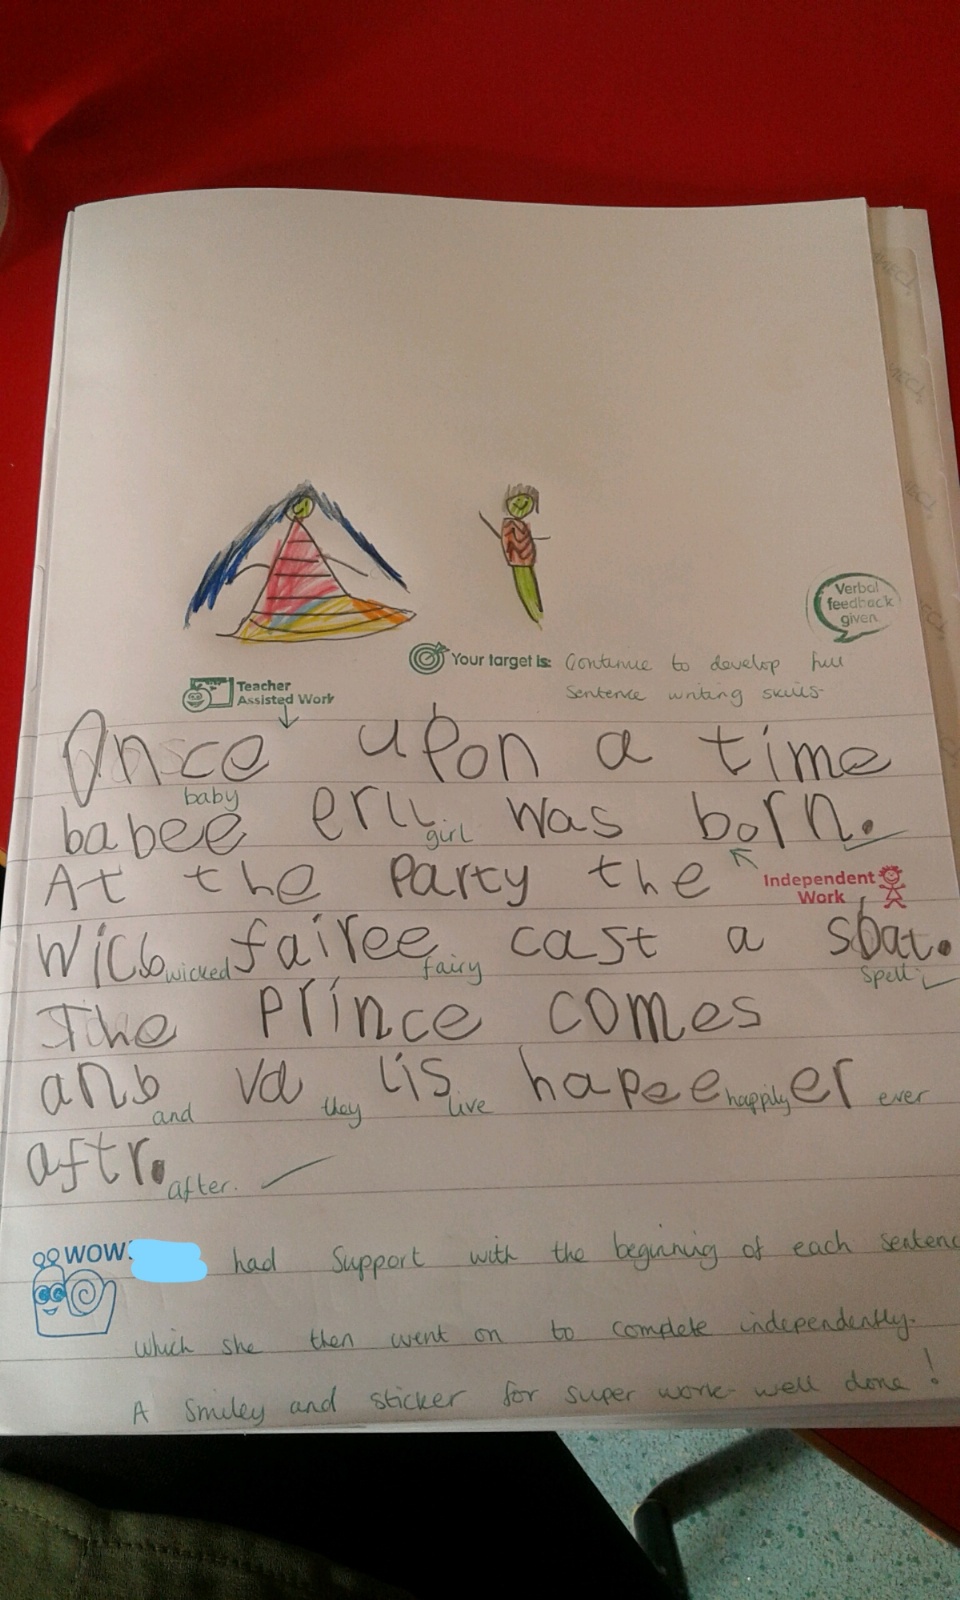 Verbal
feedback
given
Your target is: Continue to develop full
sentence writing skills.
Teacher
Assisted Work
Once upon a time
baby
babee erll was born.
girl
At the Party the
Independent
Work
Wicb fairee cast a sbat.
wicked fairy spell
The Prince comes
anb va lis hapee er
and they live happily ever
aftr.
after.
WOW! had support with the beginning of each sentenc
which she then went on to complete independently.
A smiley and sticker for super work - well done!